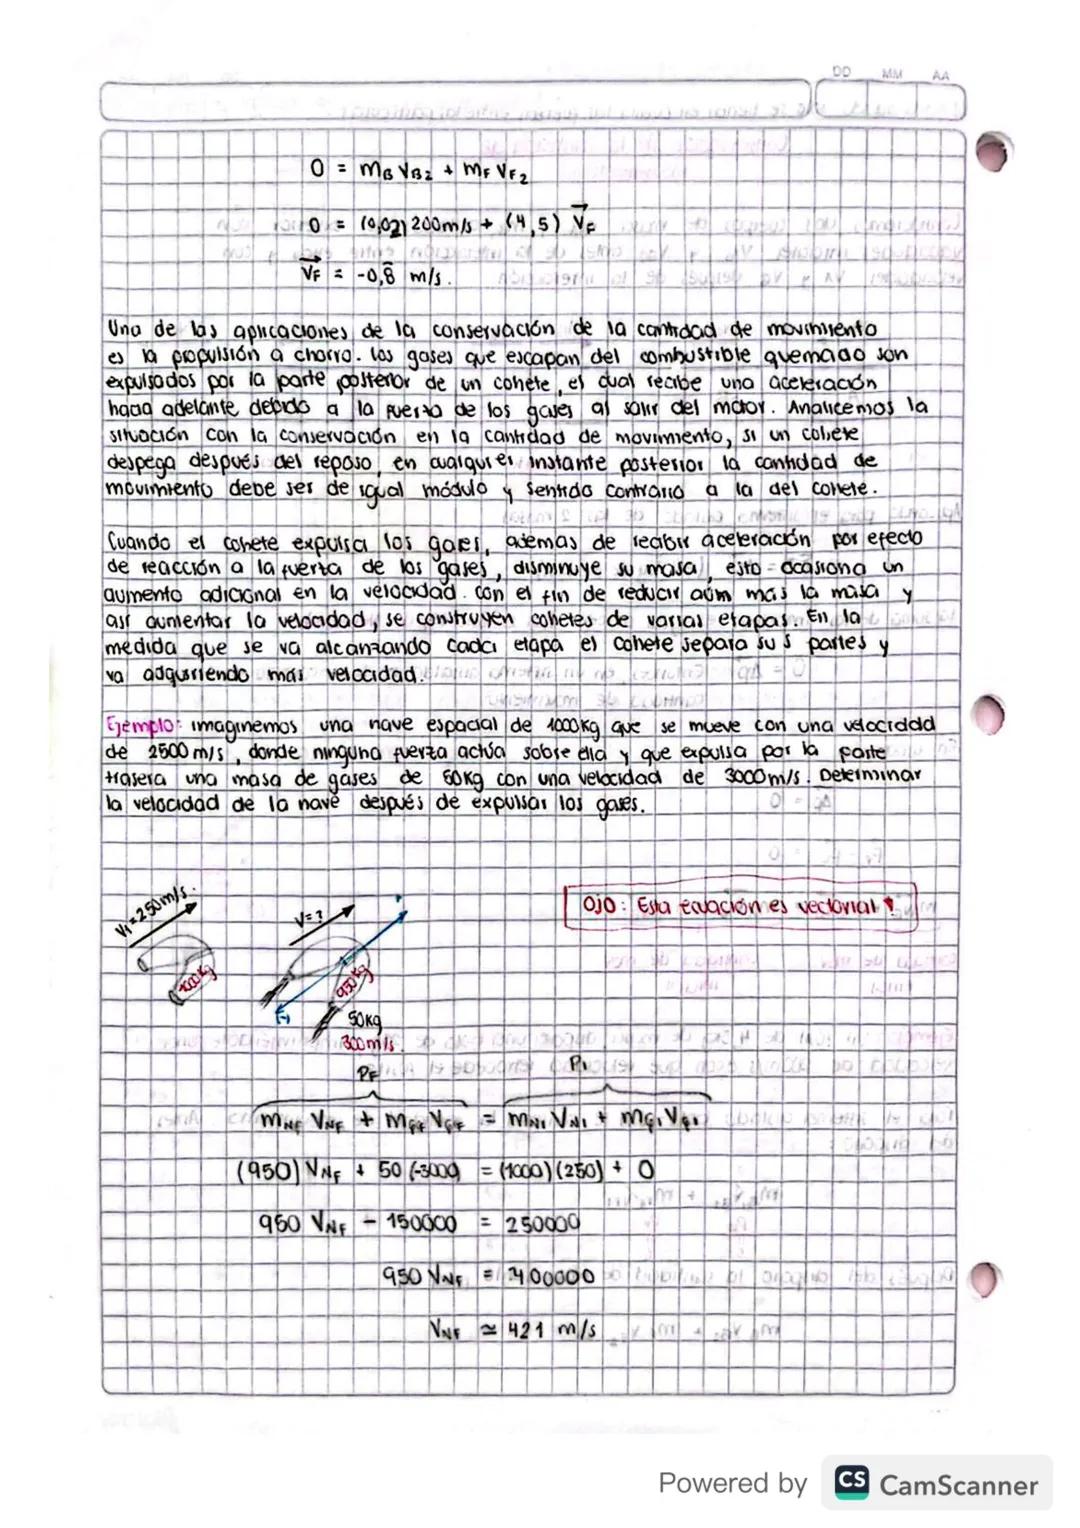 DD MM AA
0 = mB VB2 + mF VF2
0 = (0,02) 200m/s + (4,5) VF
VF = -0,8 m/s.
Una de las aplicaciones de la conservación de la cantidad de movimiento
es la propulsión a chorro. los gases que escapan del combustible quemado son
expulsados por la parte posterior de un cohete, el cual recibe una aceleración
hacia adelante debido a la fuerza de los gases al salir del motor. Analicemos la
situación con la conservación en la cantidad de movimiento, si un cohete
despega después del reposo, en cualquier instante posterior la cantidad de
movimiento debe ser de igual módulo y sentido contrario a la del cohete.
Cuando el cohete expulsa los gases, además de recibir aceleración por efecto
de reacción a la fuerza de los gases, disminuye su masa, esto ocasiona un
aumento adicional en la velocidad. con el fin de reducir aúm más la masa y
así aumentar la velocidad, se construyen cohetes de varias etapas. En la
medida que se va alcanzando cada etapa el cohete separa sus partes y
va adquiriendo más velocidad.
Ejemplo: imaginemos una nave espacial de 1000kg que se mueve con una velocidad
de 2500 m/s, donde ninguna fuerza actúa sobre ella y que expulsa por la parte
trasera una masa de gases de 50kg con una velocidad de 3000m/s. Determinar
la velocidad de la nave después de expulsar los gases.
Ojo: Esta ecuación es vectorial
V1=250m/s.
V=?
1000kg
950kg
(-)
50kg
300m/s.
PF Pi
mNF VNF + mGF VGF = mNi VNi + mGi VGi
(950) VNF + 50 (-3000) = (1000)(250) + 0
950 VNF - 150000 = 250000
950 VNF = 400000
VNF ≃ 421 m/s
Powered by CS CamScanner